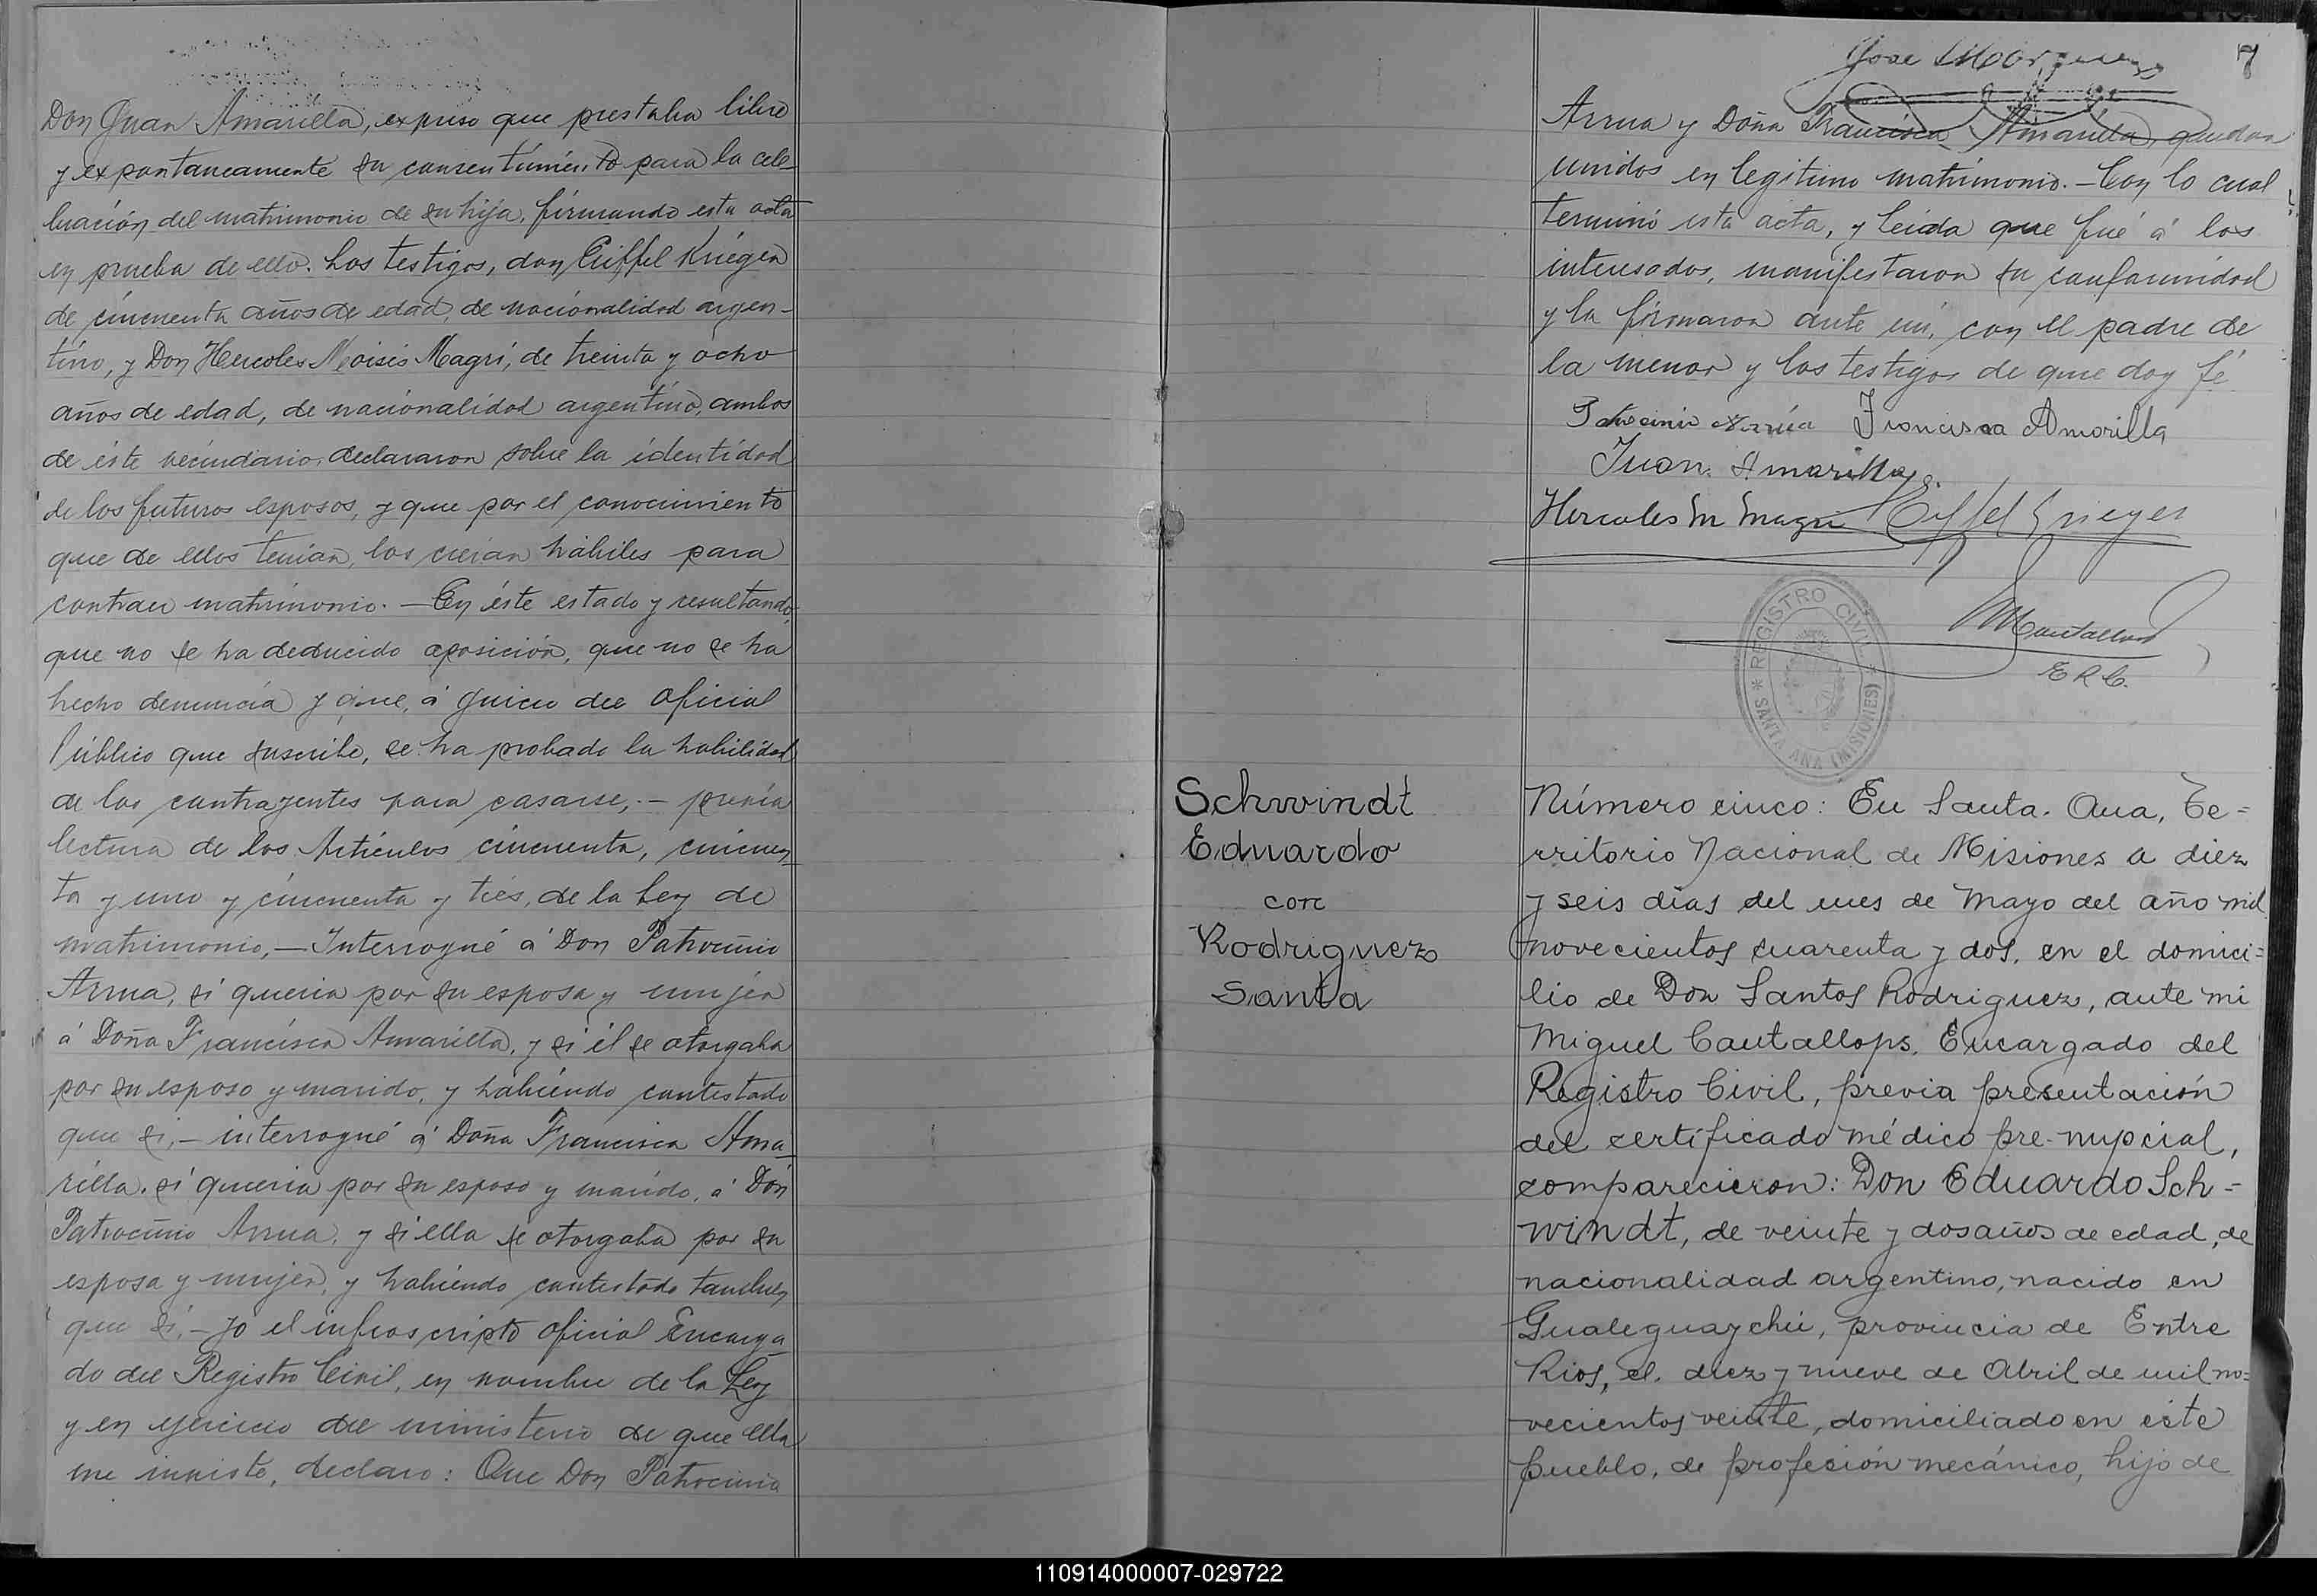 Don Juan Amarilla, expuso que prestaba libre
y expontaneamente su consentimiento para la cele-
bración del matrimonio de su hija, firmando esta acta
en prueba de ello. Los testigos, don Eiffel Kriéger
de cincuenta años de edad, de nacionalidad argen-
tino, y Don Hercoles Moisés Magri, de treinta y ocho
años de edad, de nacionalidad argentino, ambos
de éste vecindario, declararon sobre la identidad
de los futuros esposos, y que por el conocimiento
que de ellos tenían, los creían hábiles para
contraer matrimonio. — En éste estado y resultando,
que no se ha deducido oposición, que no se ha
hecho denuncia y que, á juicio del oficial
Público que suscribe, se ha probado la habilidad
de los contrayentes para casarse, - previa
lectura de los Artículos cincuenta, cincuen-
ta y uno y cincuenta y trés, de la Ley de
matrimonio, — Interrogué á Don Patrocinio
Arrua, si queria por su esposa y mujer
á Doña Francisca Amarilla, y si él se otorgaba
por su esposo y marido, y habiendo contestado
que si, - interrogué á Doña Francisca Ama-
rilla, si queria por su esposo y marido, á Don
Patrocinio Arrua, y si ella se otorgaba por su
esposa y mujer, y habiendo contestado tambien
que si, - yo el infrascripto oficial Encarga-
do del Registro Civil, en nombre de la Ley
y en ejercicio del ministerio de que ella
me inviste, declaro: Que Don Patrocinio
7
Arrua y Doña Francisca Amarilla, quedan
unidos en legitimo matrimonio. - Con lo cual
terminó esta acta, y leída que fué á los
interesados, manifestaron su conformidad
y la firmaron ante mi, con el padre de
la menor y los testigos de que doy fé
Patrocinio Arrúa Francisca Amarilla
Juan Amarilla
Hercoles M Magri Eiffel Krieger
MCantallops
E R C.
* REGISTRO CIVIL *
SANTA ANA (MISIONES)
Schwindt
Eduardo
con
Rodriguez
Santa
Número cinco: En Santa. Ana, Te=
rritorio Nacional de Misiones a diez
y seis días del mes de Mayo del año mil
novecientos cuarenta y dos, en el domici=
lio de Don Santos Rodriguez, ante mi
Miguel Cantallops, Encargado del
Registro Civil, previa presentación
del certificado médico pre-nupcial,
comparecieron: Don Eduardo Sch=
windt, de veinte y dos años de edad, de
nacionalidad argentino, nacido en
Gualeguaychú, provincia de Entre
Rios, el. diez y nueve de Abril de mil no=
vecientos veinte, domiciliado en éste
pueblo, de profesión mecánico, hijo de
110914000007-029722